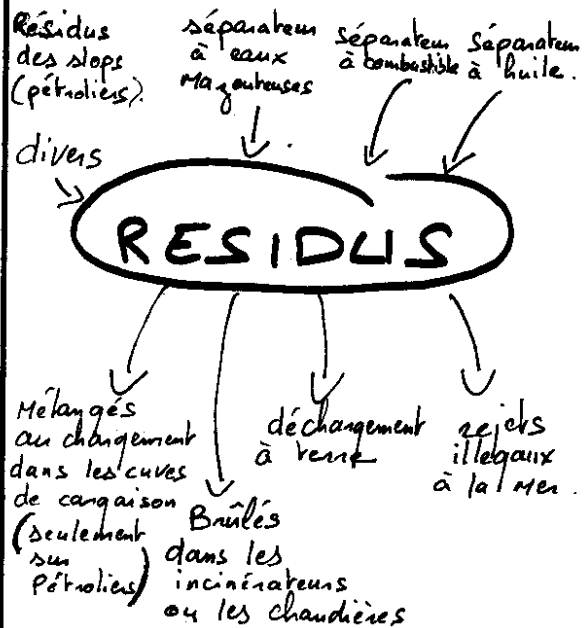 Résidus
des slops
(pétroliers).
séparateur
à eaux
Mazouteuses
Séparateur
à combustible
Séparateur
à huile.
divers
RESIDUS
Mélangés
au chargement
dans les cuves
de cargaison
(seulement
sur
Pétroliers)
Brûlés
dans les
incinérateurs
ou les chaudières
déchargement
à terre
rejets
illégaux
à la Mer.